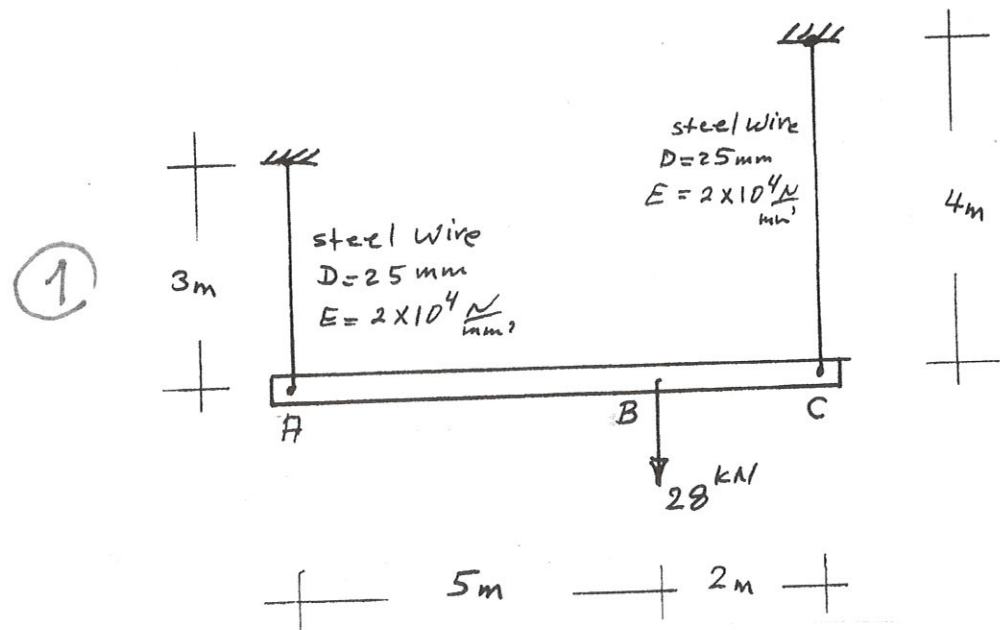 steel wire
D=25mm
E = 2×10⁴ N/mm²
4m
1
3m
steel wire
D=25mm
E= 2×10⁴ N/mm²
A
B
C
28 kN
5m
2m